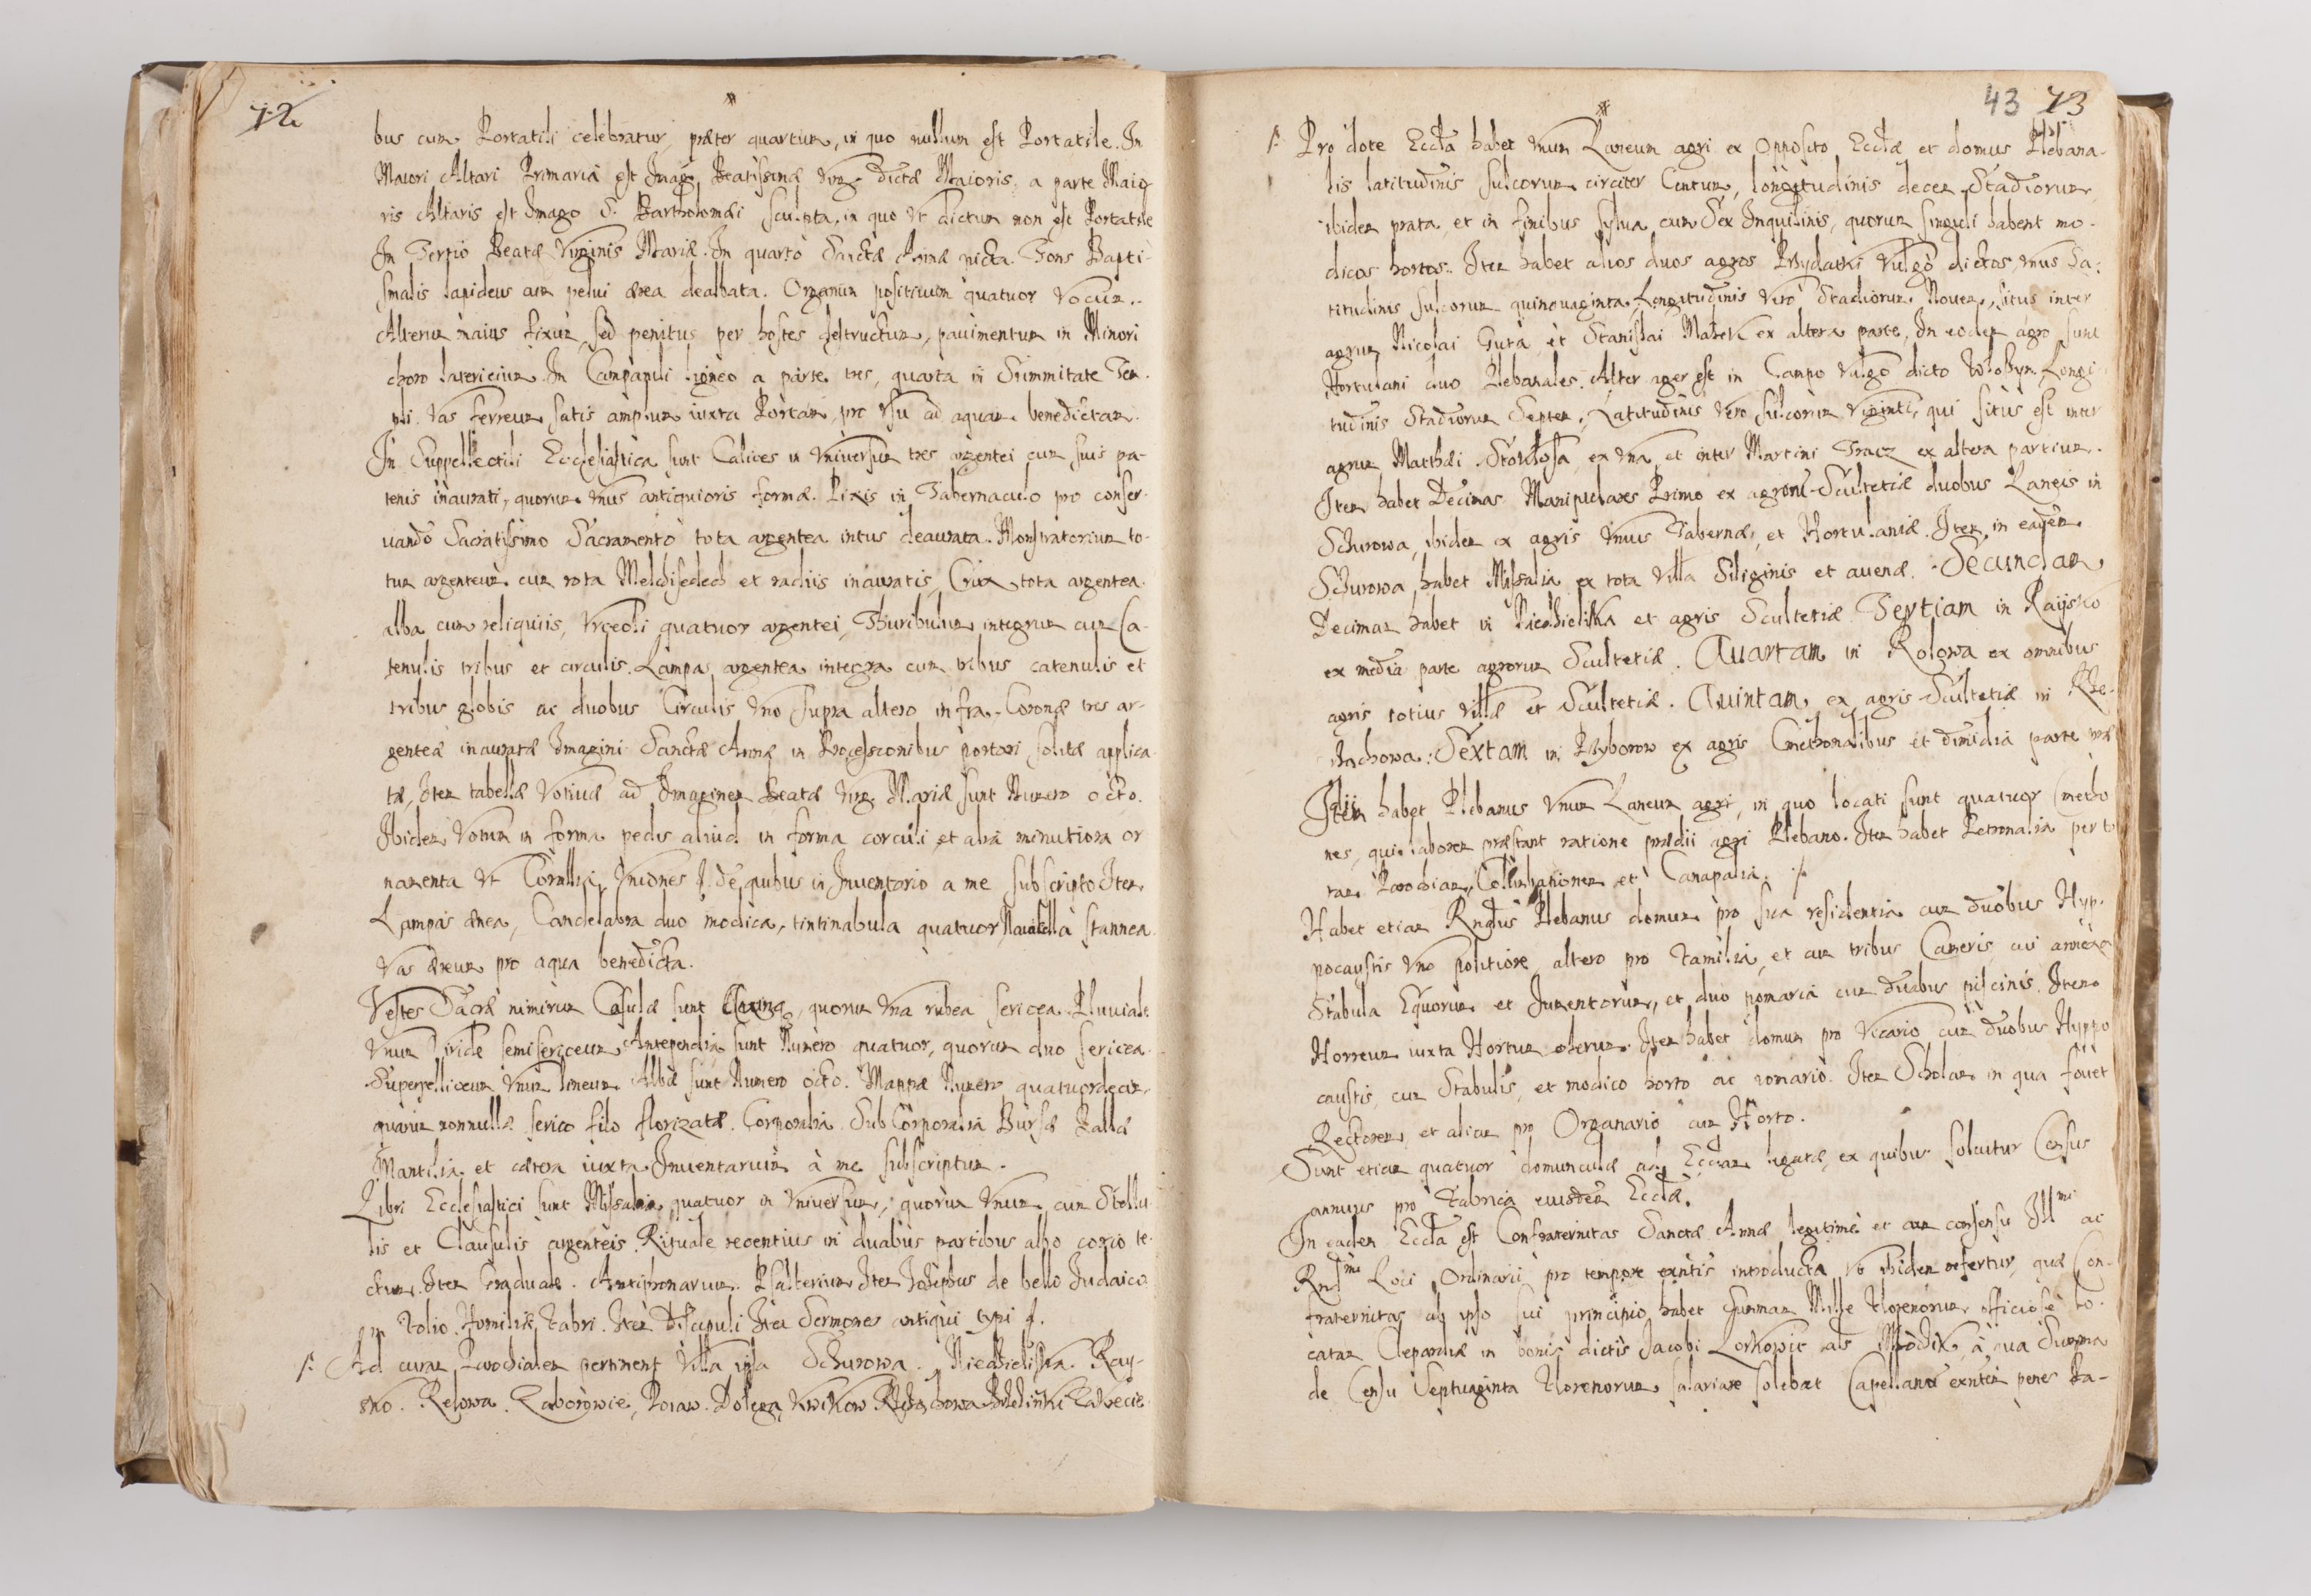 72
bus cum Portatili celebratur, præter quartum, in quo nullum est Portatile. In
Maiori Altari Primaria est Imago Beatissimæ Virg. dictæ Maioris, a parte Maio
ris Altaris est Imago S. Bartholomæi sculpta, in quo vt dictum non est Portatile
In Tertio Beatæ Virginis Mariæ. In quarto Sanctæ Annæ picta. Fons Bapti-
smalis lapideus cum pelui ærea dealbata. Organum positiuum quatuor vocum.
Alterum maius fixum, sed penitus per hostes destructum, pauimentum in Minori
choro latericium. In Campanili ligneo a parte tres, quarta in Summitate Tem-
pli. Vas ferreum satis amplum iuxta Portam, pro vsu ad aquam benedictam.
In Suppellectili Ecclesiastica sunt Calices in vniuersum tres argentei cum suis pa-
tenis inaurati, quorum vnus antiquioris formæ. Pixis in Tabernaculo pro conser-
uando Sacratissimo Sacramento tota argentea intus deaurata. Monstratorium to-
tum argenteum cum rota Melchisedech et radiis inauratis, Crux tota argentea
alba cum reliquiis, Vrceoli quatuor argentei, Thuribulum integrum cum Ca-
tenulis tribus et circulis. Lampas argentea integra cum tribus catenulis et
tribus globis ac duobus Circulis vno supra altero infra. Coronæ tres ar-
genteæ inauratæ Imagini Sanctæ Annæ in Processionibus portari solitæ applica
tæ, Item tabellæ votiuæ ad Imaginem Beatæ Virg. Mariæ sunt Numero octo.
Ibidem Votum in forma pedis aliud in forma corculi, et alia minutiora or
namenta vt Corallia, Vniones &. de quibus in Inuentario a me subscripto Item
Lampas ænea, Candelabra duo modica, tintinabula quatuor, Nauicella stannea
Vas æreum pro aqua benedicta.
Vestes Sacræ nimirum Casulæ sunt quorum vna rubea sericea. Pluuiale
vnum viride semisericeum, Antependia sunt Numero quatuor, quorum duo sericea
Superpelliceum vnum lineum. Albæ sunt Numero octo. Mappæ Numero quatuordecim
quarum nonnullæ serico filo florizatæ. Corporalia Sub Corporalia Bursæ Pallæ
Mantilia et cætera iuxta Inuentarium à me subscriptum.
Libri Ecclesiastici sunt Missalia quatuor in vniuersum, quorum vnum cum Stellu
lis et Clausulis argenteis. Rituale recentius in duabus partibus albo corio te-
ctum. Item Graduale. Antiphonarium. Psalterium Item Iosephus de bello Iudaico
in folio. Homiliæ Fabri. Item Discipuli Item Sermones antiqui typi &.
Ad curam Parochialem pertinent Villa ipsa Schurowa. Niedzieliska. Ray-
sko. Relowa. Zaborowie, Poraw. Dolega, Kwikow
43 73
Pro dote Eccl̃a habet vnum Laneum agri ex opposito Eccl̃æ et domus Plebana-
lis latitudinis sulcorum circiter Centum, longitudinis decem Stadiorum,
ibidem prata, et in finibus sylua cum Sex Inquilinis, quorum singuli habent mo-
dicos hortos. Item habet alios duos agros Przydatki vulgo dictos, vnus La-
titudinis sulcorum quinquaginta, Longitudinis vero Stadiorum Nouem, situs inter
agrum Nicolai Guta et Stanislai Malek ex altera parte, In eodem agro sunt
Hortulani duo Plebanales. Alter ager est in Campo vulgo dicto Longi-
tudinis Stadiorum Septem, Latitudinis vero sulcorum viginti, qui situs est inter
agrum Matthæi Stoklosa ex vna, et inter Martini Tracz ex altera partium.
Item habet Decimas Manipulares Primo ex agrone Scultetiæ duobus Laneis in
Schurowa, ibidem ex agris vnius Tabernæ, et Hortulaniæ. Item in eadem
Schurowa habet Missalia ex tota Villa Siliginis et auenæ. Secundam
Decimam habet in Niedzieliska et agris Scultetiæ Tertiam in Raysko
ex media parte agrorum Scultetiæ. Quartam in Rolowa ex omnibus
agris totius Villæ et Scultetiæ. Quintam ex agris Scultetiæ in Rze-
dachowa. Sextam in Przyborow ex agris Cmethonalibus et dimidia parte
Item habet Plebanus vnum Laneum agri, in quo locati sunt quatuor Cmetho
nes, qui laborem præstant ratione prædii agri Plebano. Item habet Petronalia per to
tam Parochiam, Columbationem et Canapalia.
Habet etiam Rndus Plebanus domum pro sua residentia cum duobus Hyp-
pocaustis vno politiore, altero pro Familia, et cum tribus Cameris, cui annexa
Stabula Equorum et Iumentorum, et duo pomaria cum duabus piscinis. Item
Horreum iuxta Hortum olerum. Item habet domum pro Vicario cum duobus Hyppo
caustis, cum Stabulis, et modico horto ac pomario. Item Scholam in qua fouet
Rectorem et aliam pro Organario cum Horto.
Sunt etiam quatuor domunculæ ad Eccl̃am legatæ, ex quibus soluitur Census
annuus pro Fabrica eiusdem Eccl̃æ.
In eadem Eccl̃a est Confraternitas Sanctæ Annæ legitime et cum consensu Illmi ac
Rndmi Loci Ordinarii pro tempore exntis introducta, vt ibidem refertur, quæ Con-
fraternitas ab ipso sui principio habet Summam Mille Florenorum officiose lo-
catam Clepardiæ in bonis dictis Jacobi Lorkowic als Miodik, à qua Summa
de Censu Septuaginta Florenorum salariare solebat Capellanum exntem penes Ba-